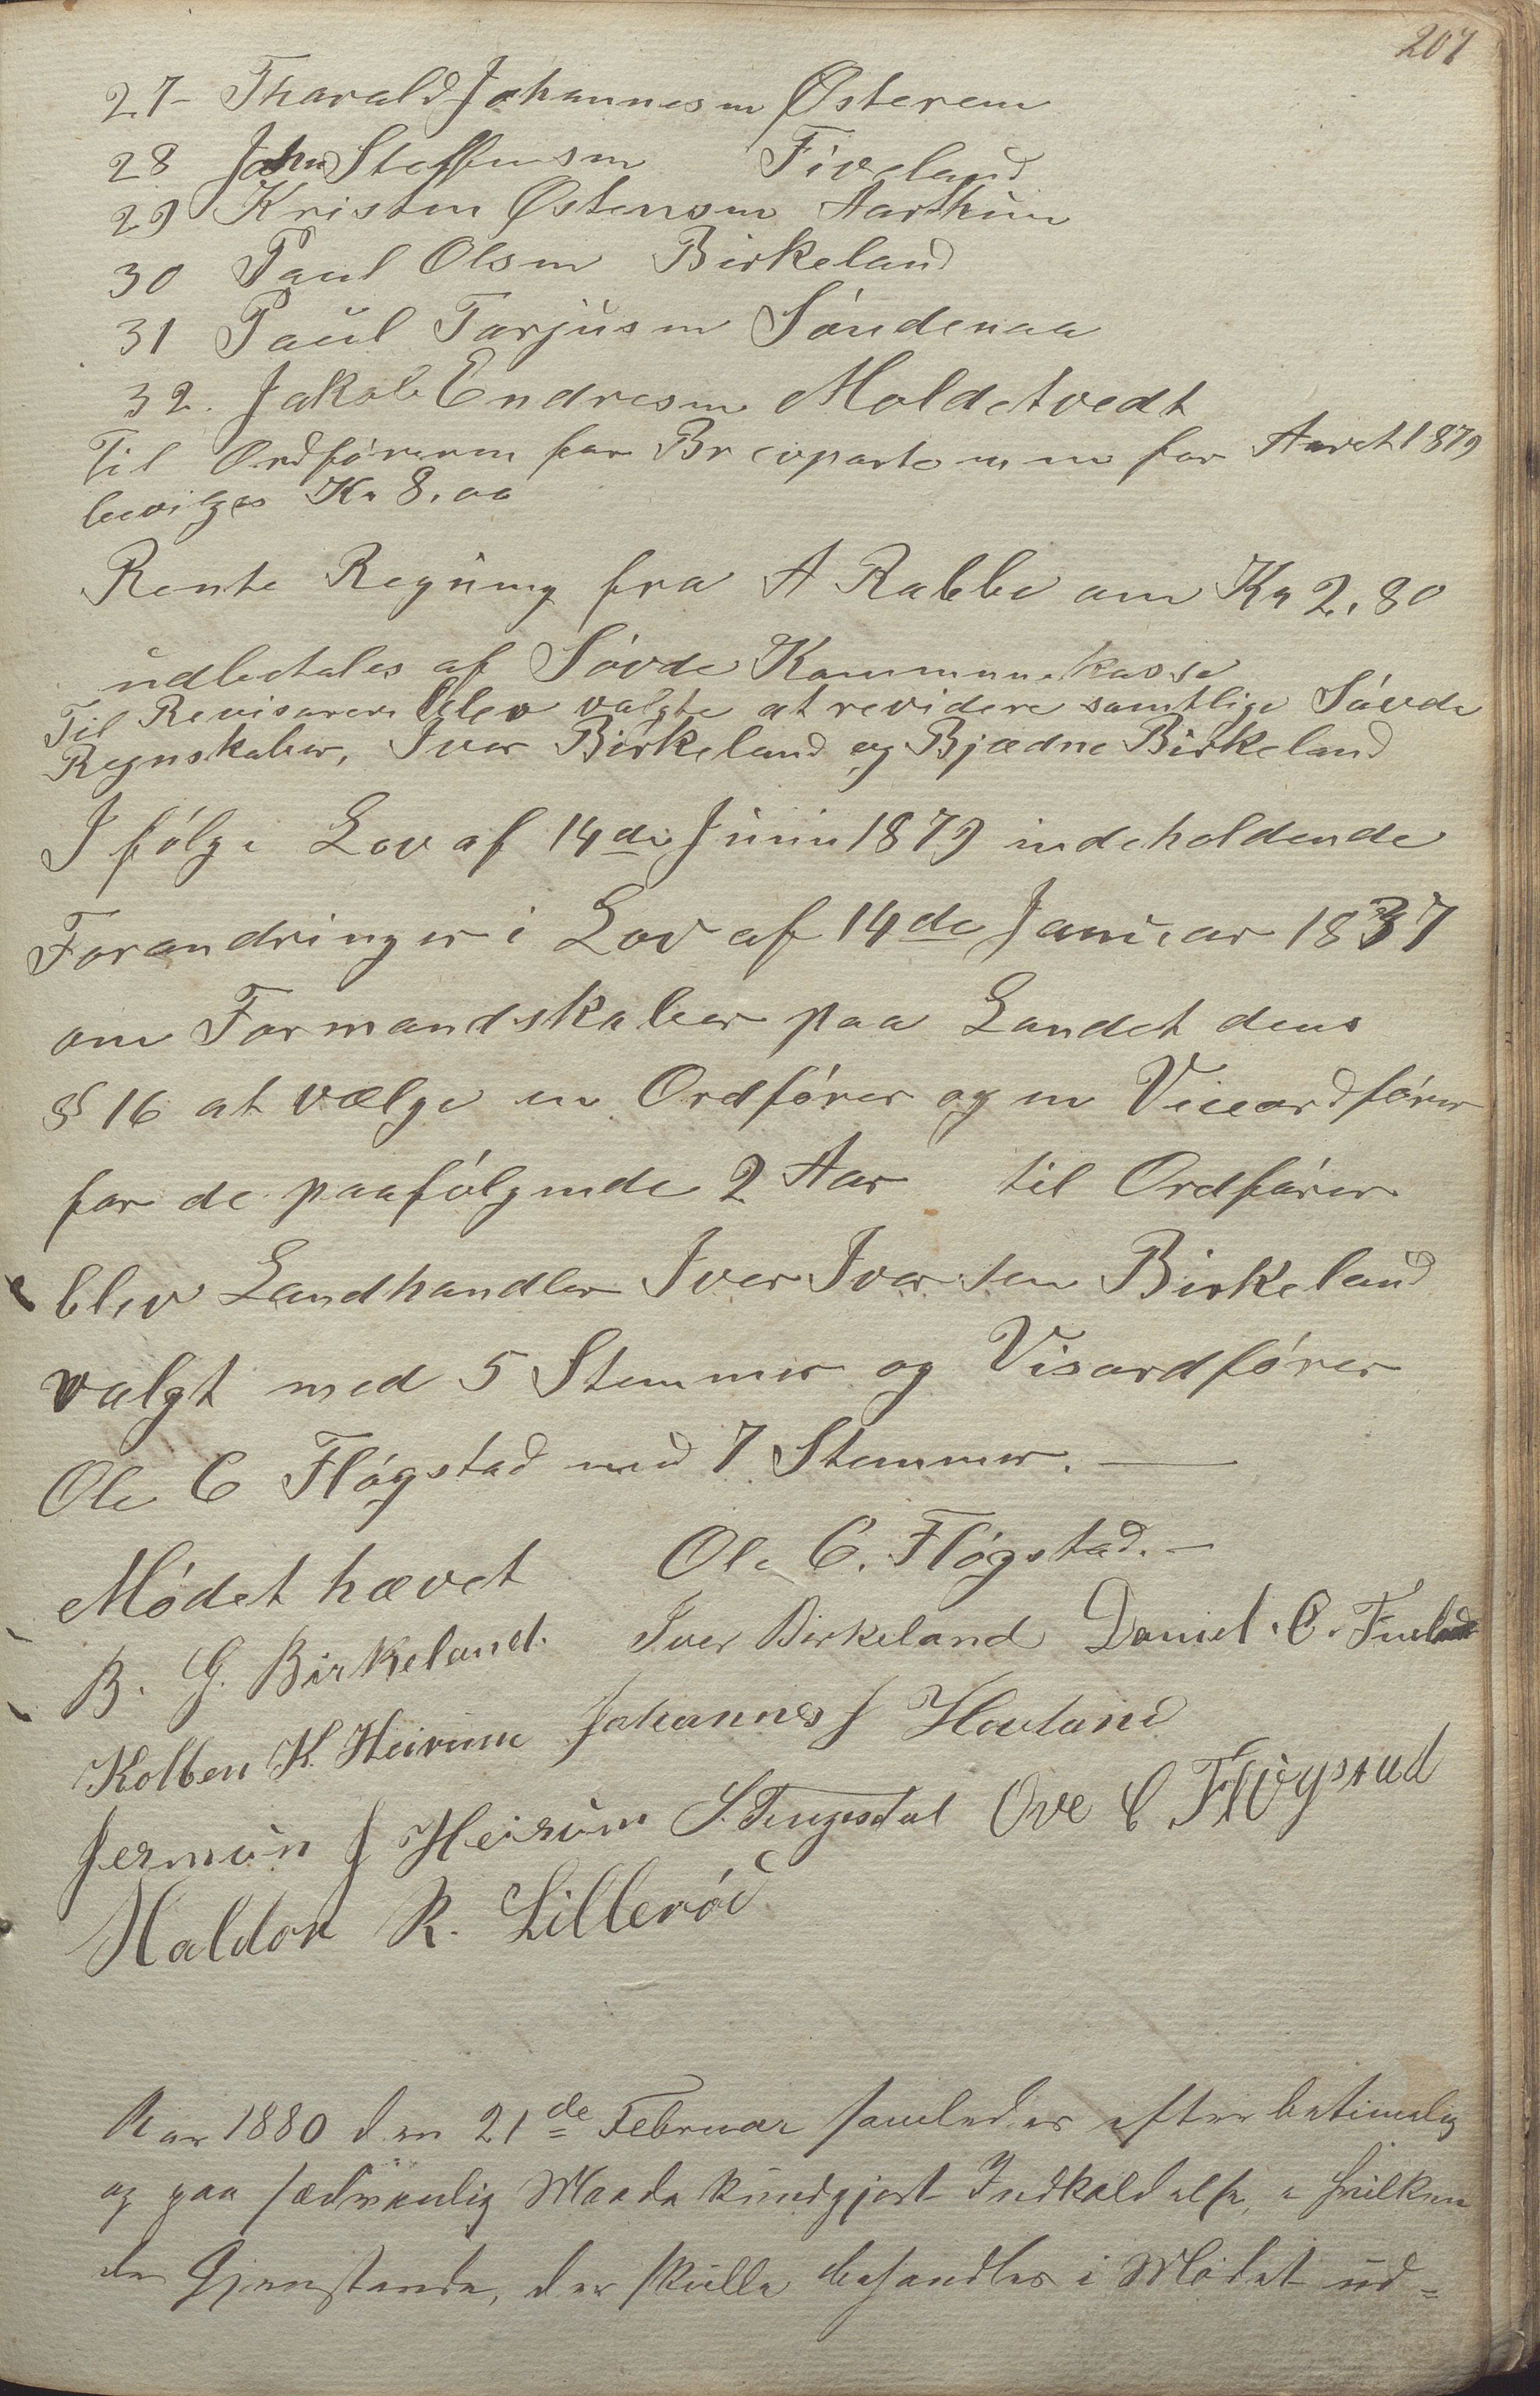 207
27- Tharald Johannesen Østerem
28 John Steffensen Fiveland
29 Kristen Østensen Aarthun
30 Paul Olsen Birkeland
31 Paul Tarjusen Söndenaa
32. Jakob Endresen Moldetvedt
Til Ordföreren for Brevporto m m for Aaret 1879
bevilges Kr 8.00
Rente Regning fra A Rabbe om Kr 2,80
udbetales af Sövde Kommunekasse
Til Revisorere blev valgte at revidere samtlige Sövde
Regnskaber, Iver Birkeland og Bjædne Birkeland
I fölge Lov af 14de Juni 1879 indeholdende
Forandringer i Lov af 14de Januar 1837
om Formandskaber paa Landet dens
§ 16 at vælge en Ordförer og en Viceordförer
for de paafölgende 2 Aar til Ordförer
blev Landhandler Iver Iversen Birkeland
valgt med 5 Stemmer og Visordförer
Ole C Flögstad med 7 Stemmer.
Mödet hævet Ole C. Flögstad.-
B. G. Birkeland. Iver Birkeland Daniel. C.
Kolben K. Heirum Johannes J Hovland
Jermun J Heirum S. Tengesdal Ove C Flögstad
Haldor R. Lilleröd
Aar 1880 den 21de Februar samledes efter betimelig
og paa sædvanlig Maade kundgjort Indkaldelse, i hvilken
de Gjenstande, der skulle behandles i Mödet ud=